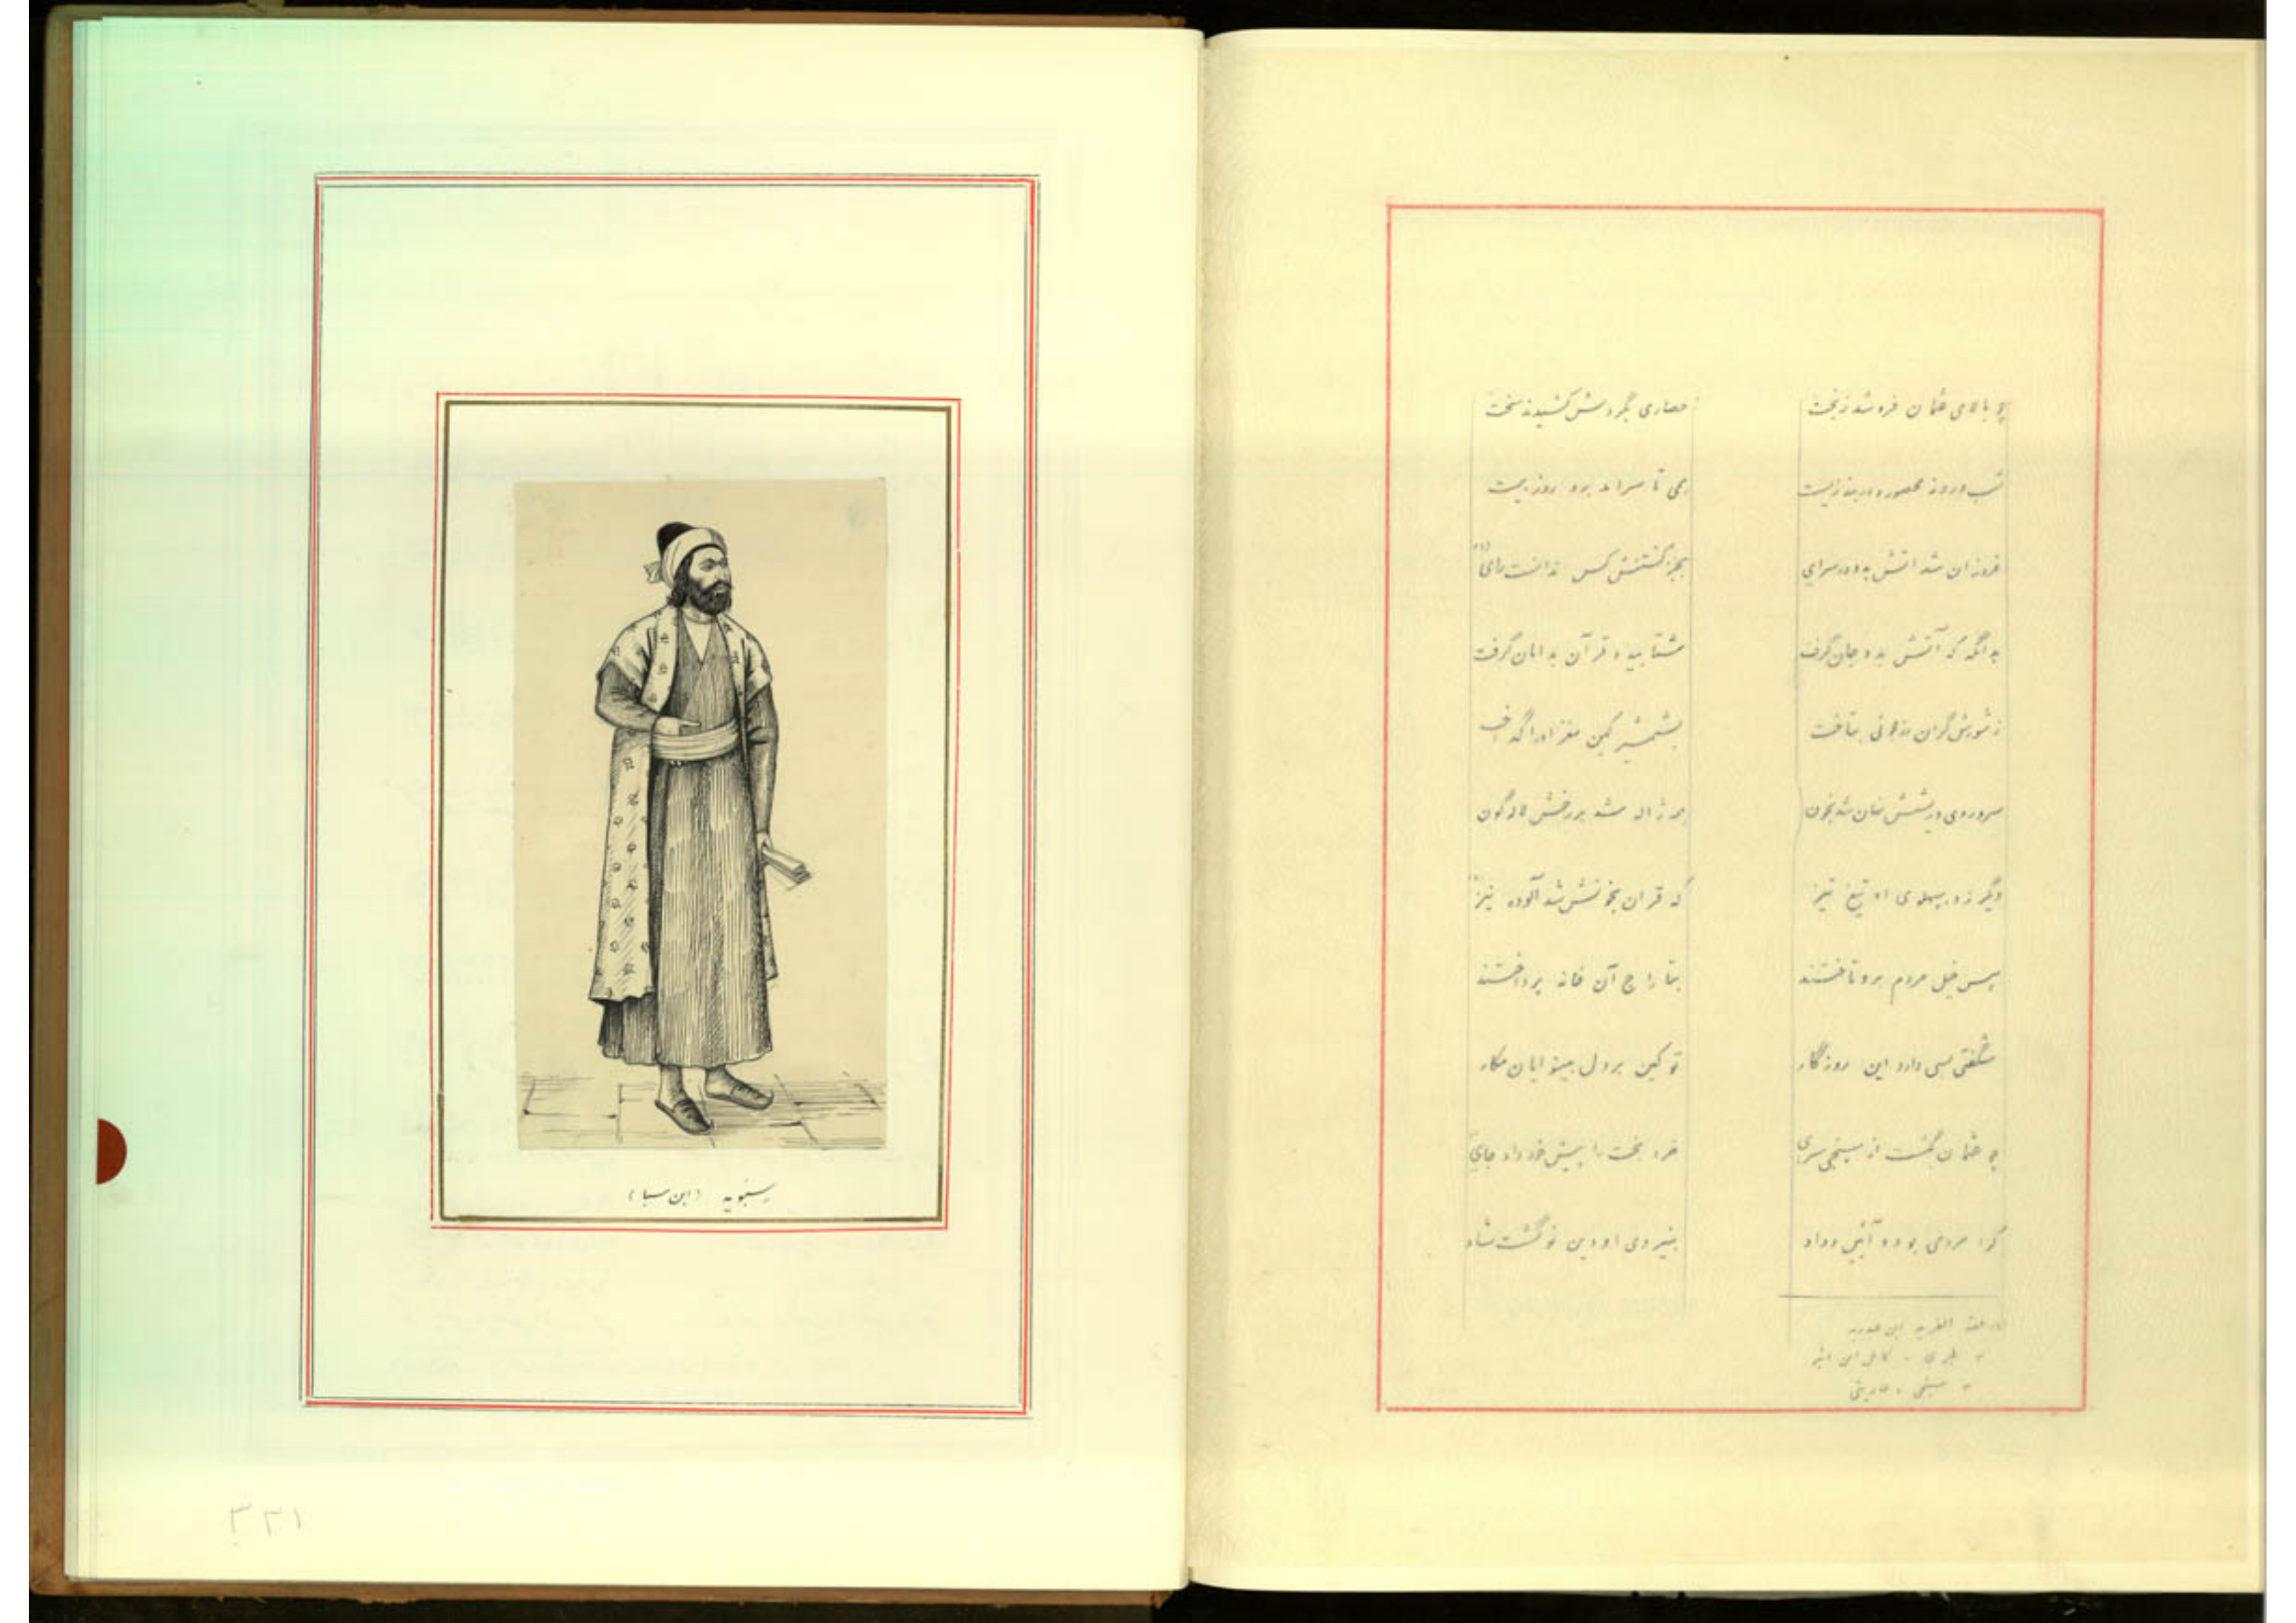 چه بالای عثمان فرو شد ز تخت حصاری بگردش کشیدند سخت
شب و روز محصور و در بند زیست همی تا سرآمد برو روز بیست
فروزان شد آتش بدو در سرای بجز کشتنش کس ندانست رای
بدانگه که آتش بدو جان گرفت شتابید و قرآن بدامان گرفت
ز شورش گران بتاخت بشمشیر کین مغز او را گداخت
سر و روی و ریشش نهان شد بخون چو ژاله شد بر رخش لاله گون
دگر زد بپهلوی او تیغ تیز که قران بخونش شد آلوده نیز
پس خیل مردم برو تاختند بتاراج آن خانه پرداختند
شگفتی بسی دارد این روزگار تو کین بر دل بینوایان مکار
چو عثمان گذشت از سپنجی سرای خرد بخت را پیش خود داد جای
کرا مردمی بود و آیین و داد بنیروی او دین نو گشت شاد
عقد الفرید ابن عبدربه
طبری - کامل ابن اثیر
سپنجی = عاریتی
سنبویه (ابن سبا)
۳۲۱